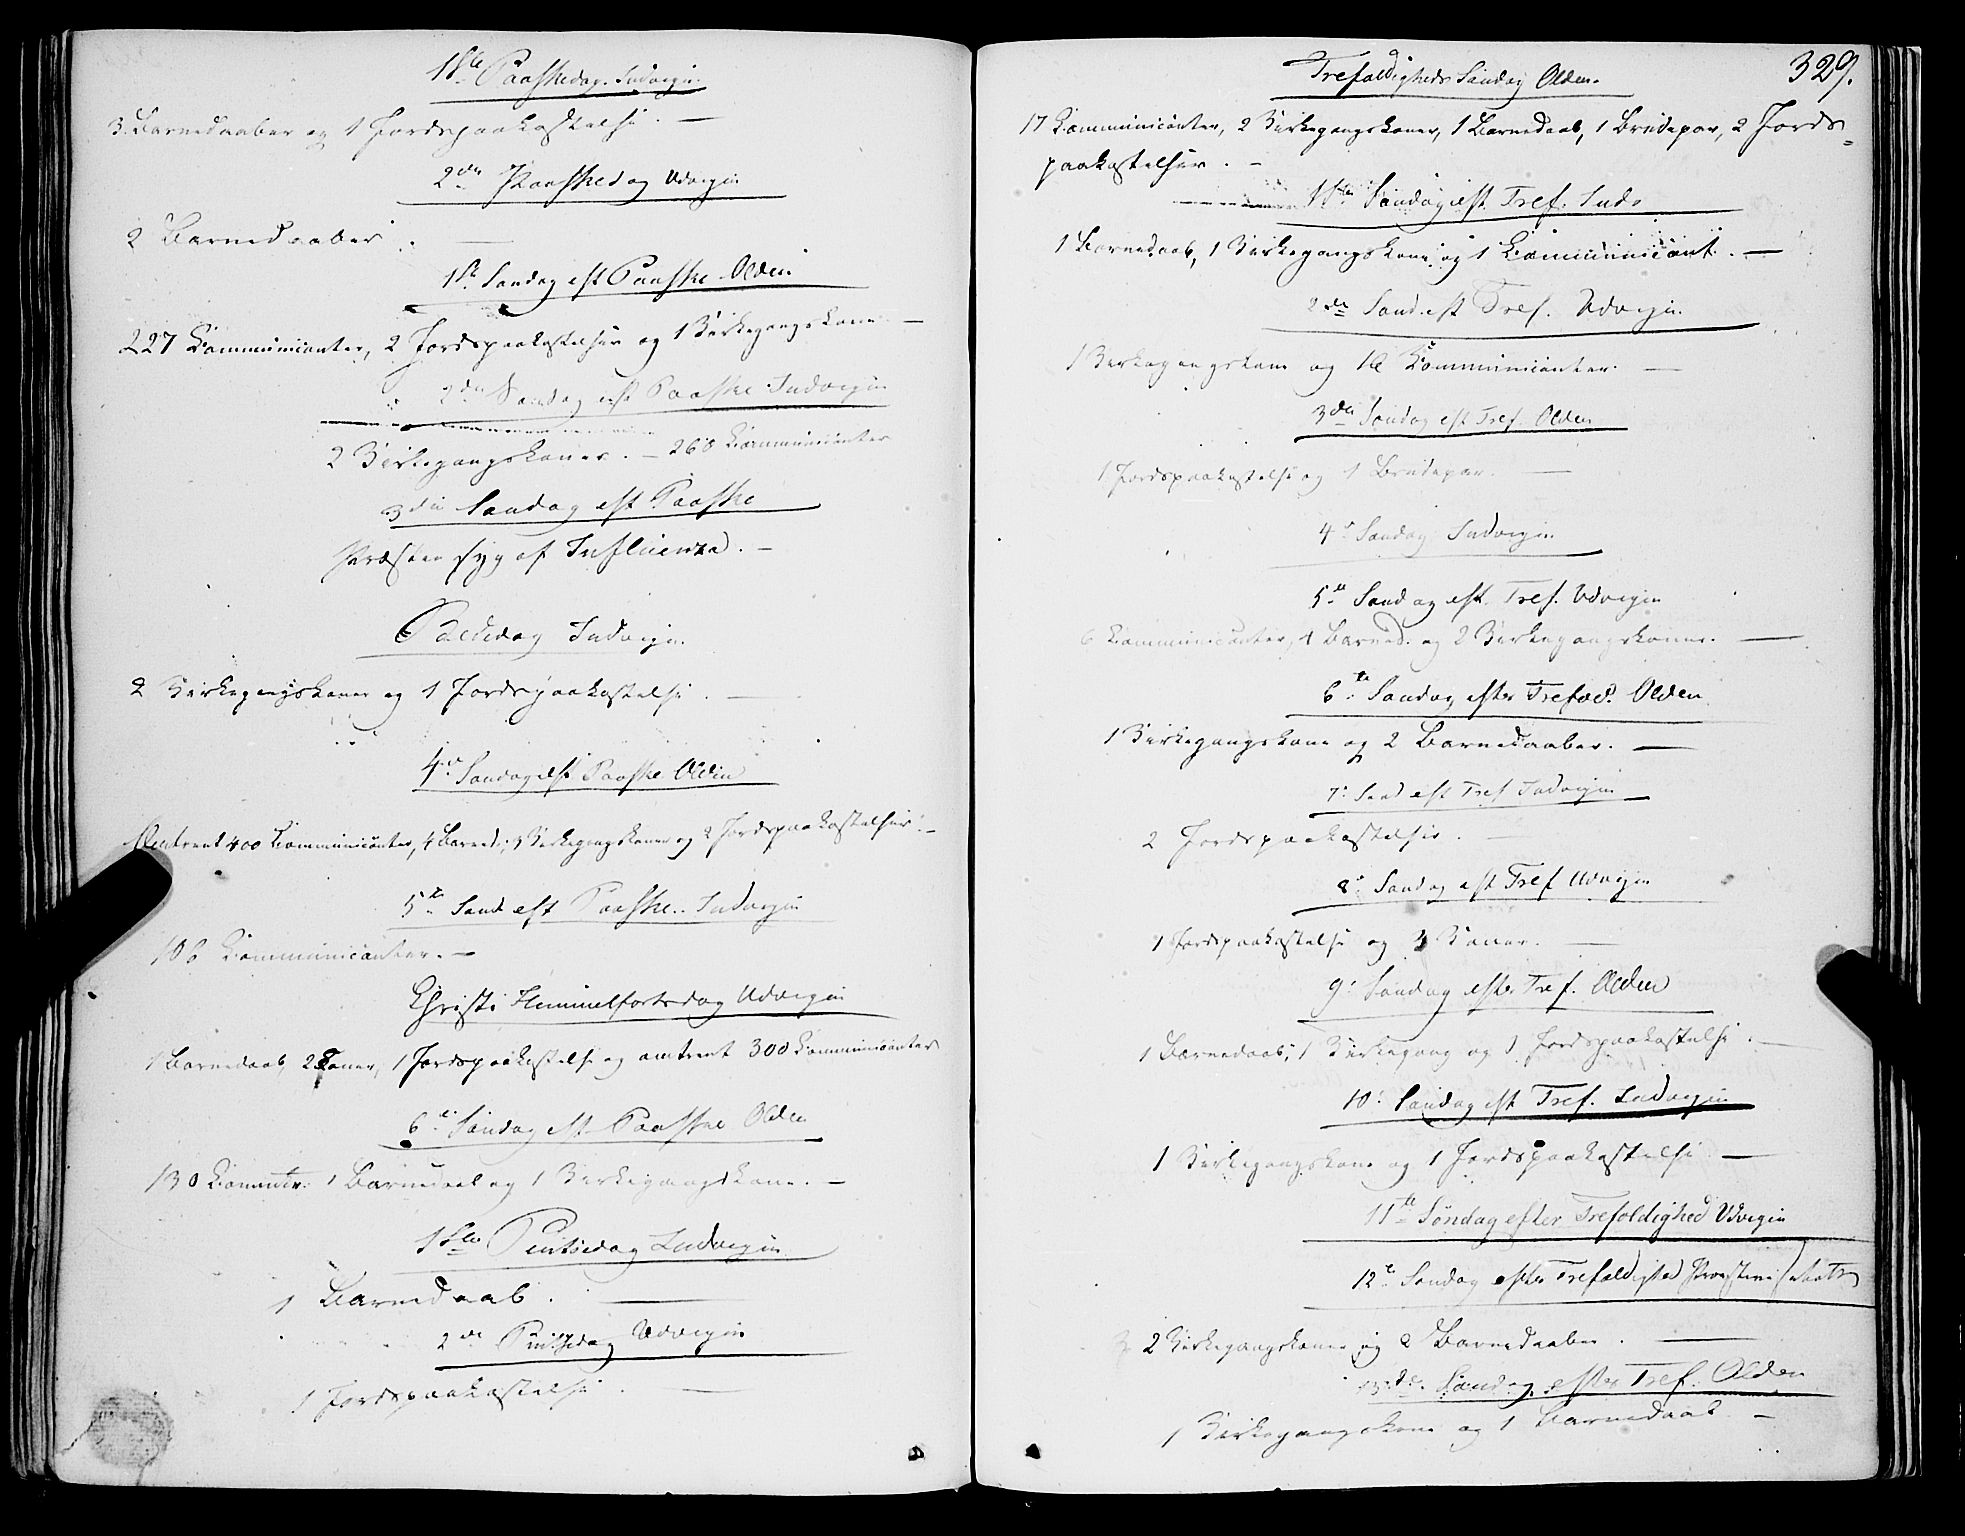 1ste Paaskedag. Indvigen.
3 Barnedaaber og 1 Jordspaakastelse. —
2den Paaskedag Udvigen
2 Barnedaaber. —
1ste Søndag eft Paaske Olden
227 Communicanter, 2 Jordspaakastelser og 1 Kirkegangskone. —
2den Søndag eft Paaske Indvigen
2 Kirkegangskoner. — 260 Communicanter
3die Søndag eft Paaske
Præsten syg af Influenza. —
Bededag Indvigen.
2 Kirkegangskoner og 1 Jordspaakastelse. —
4de Søndag eft Paaske Olden
Omtrent 400 Communicanter, 4 Barned., 3 Kirkegangskoner og 2 Jordspaakastelser. —
5te Sønd eft Paaske. Indvigen
106 Communicanter. —
Christi Himmelfartsdag Udvigen
1 Barnedaab, 2 Koner, 1 Jordspaakastelse og omtrent 300 Communicanter
6te Søndag eft Paaske Olden
130 Communtr. 1 Barnedaab og 1 Kirkegangskone. —
1ste Pintsedag Indvigen
1 Barnedaab. —
2den Pintsedag Udvigen
1 Jordspaakastelse. —
329.
Trefoldigheds Søndag Olden.
17 Communicanter, 2 Kirkegangskoner, 1 Barnedaab, 1 Brudepar, 2 Jords=
paakastelser. —
1ste Søndag eft. Tref. Indv
1 Barnedaab, 1 Kirkegangskone og 1 Communicant. —
2den Sønd. eft Tref. Udvigen.
1 Kirkegangskone og Communicanter. —
3die Søndag eft Tref. Olden
1 Jordspaakastelse og 1 Brudepar. —
4de Søndag Indvigen
5te Søndag eft. Tref. Udvigen
6 Communicanter, 1 Barned. og 2 Kirkegangskoner. —
6te Søndag efter Trefold. Olden
1 Kirkegangskone og 2 Barnedaaber. —
7: Sønd eft Tref Indvigen
2 Jordspaakastelser. —
8: Søndag eft Tref Udvigen
1 Jordspaakastelse og 3 Koner. —
9: Søndag efter Tref. Olden
1 Barnedaab, 1 Kirkegang og 1 Jordspaakastelse. —
10: Søndag eft Tref. Indvigen
1 Kirkegangskone og 1 Jordspaakastelse. —
11te Søndag efter Trefoldighed Udvigen
12te Søndag efter Trefoldighed
2 Kirkegangskoner og 2 Barnedaaber. —
13de Søndag efter Tref. Olden
1 Kirkegangskone og 1 Barnedaab. —